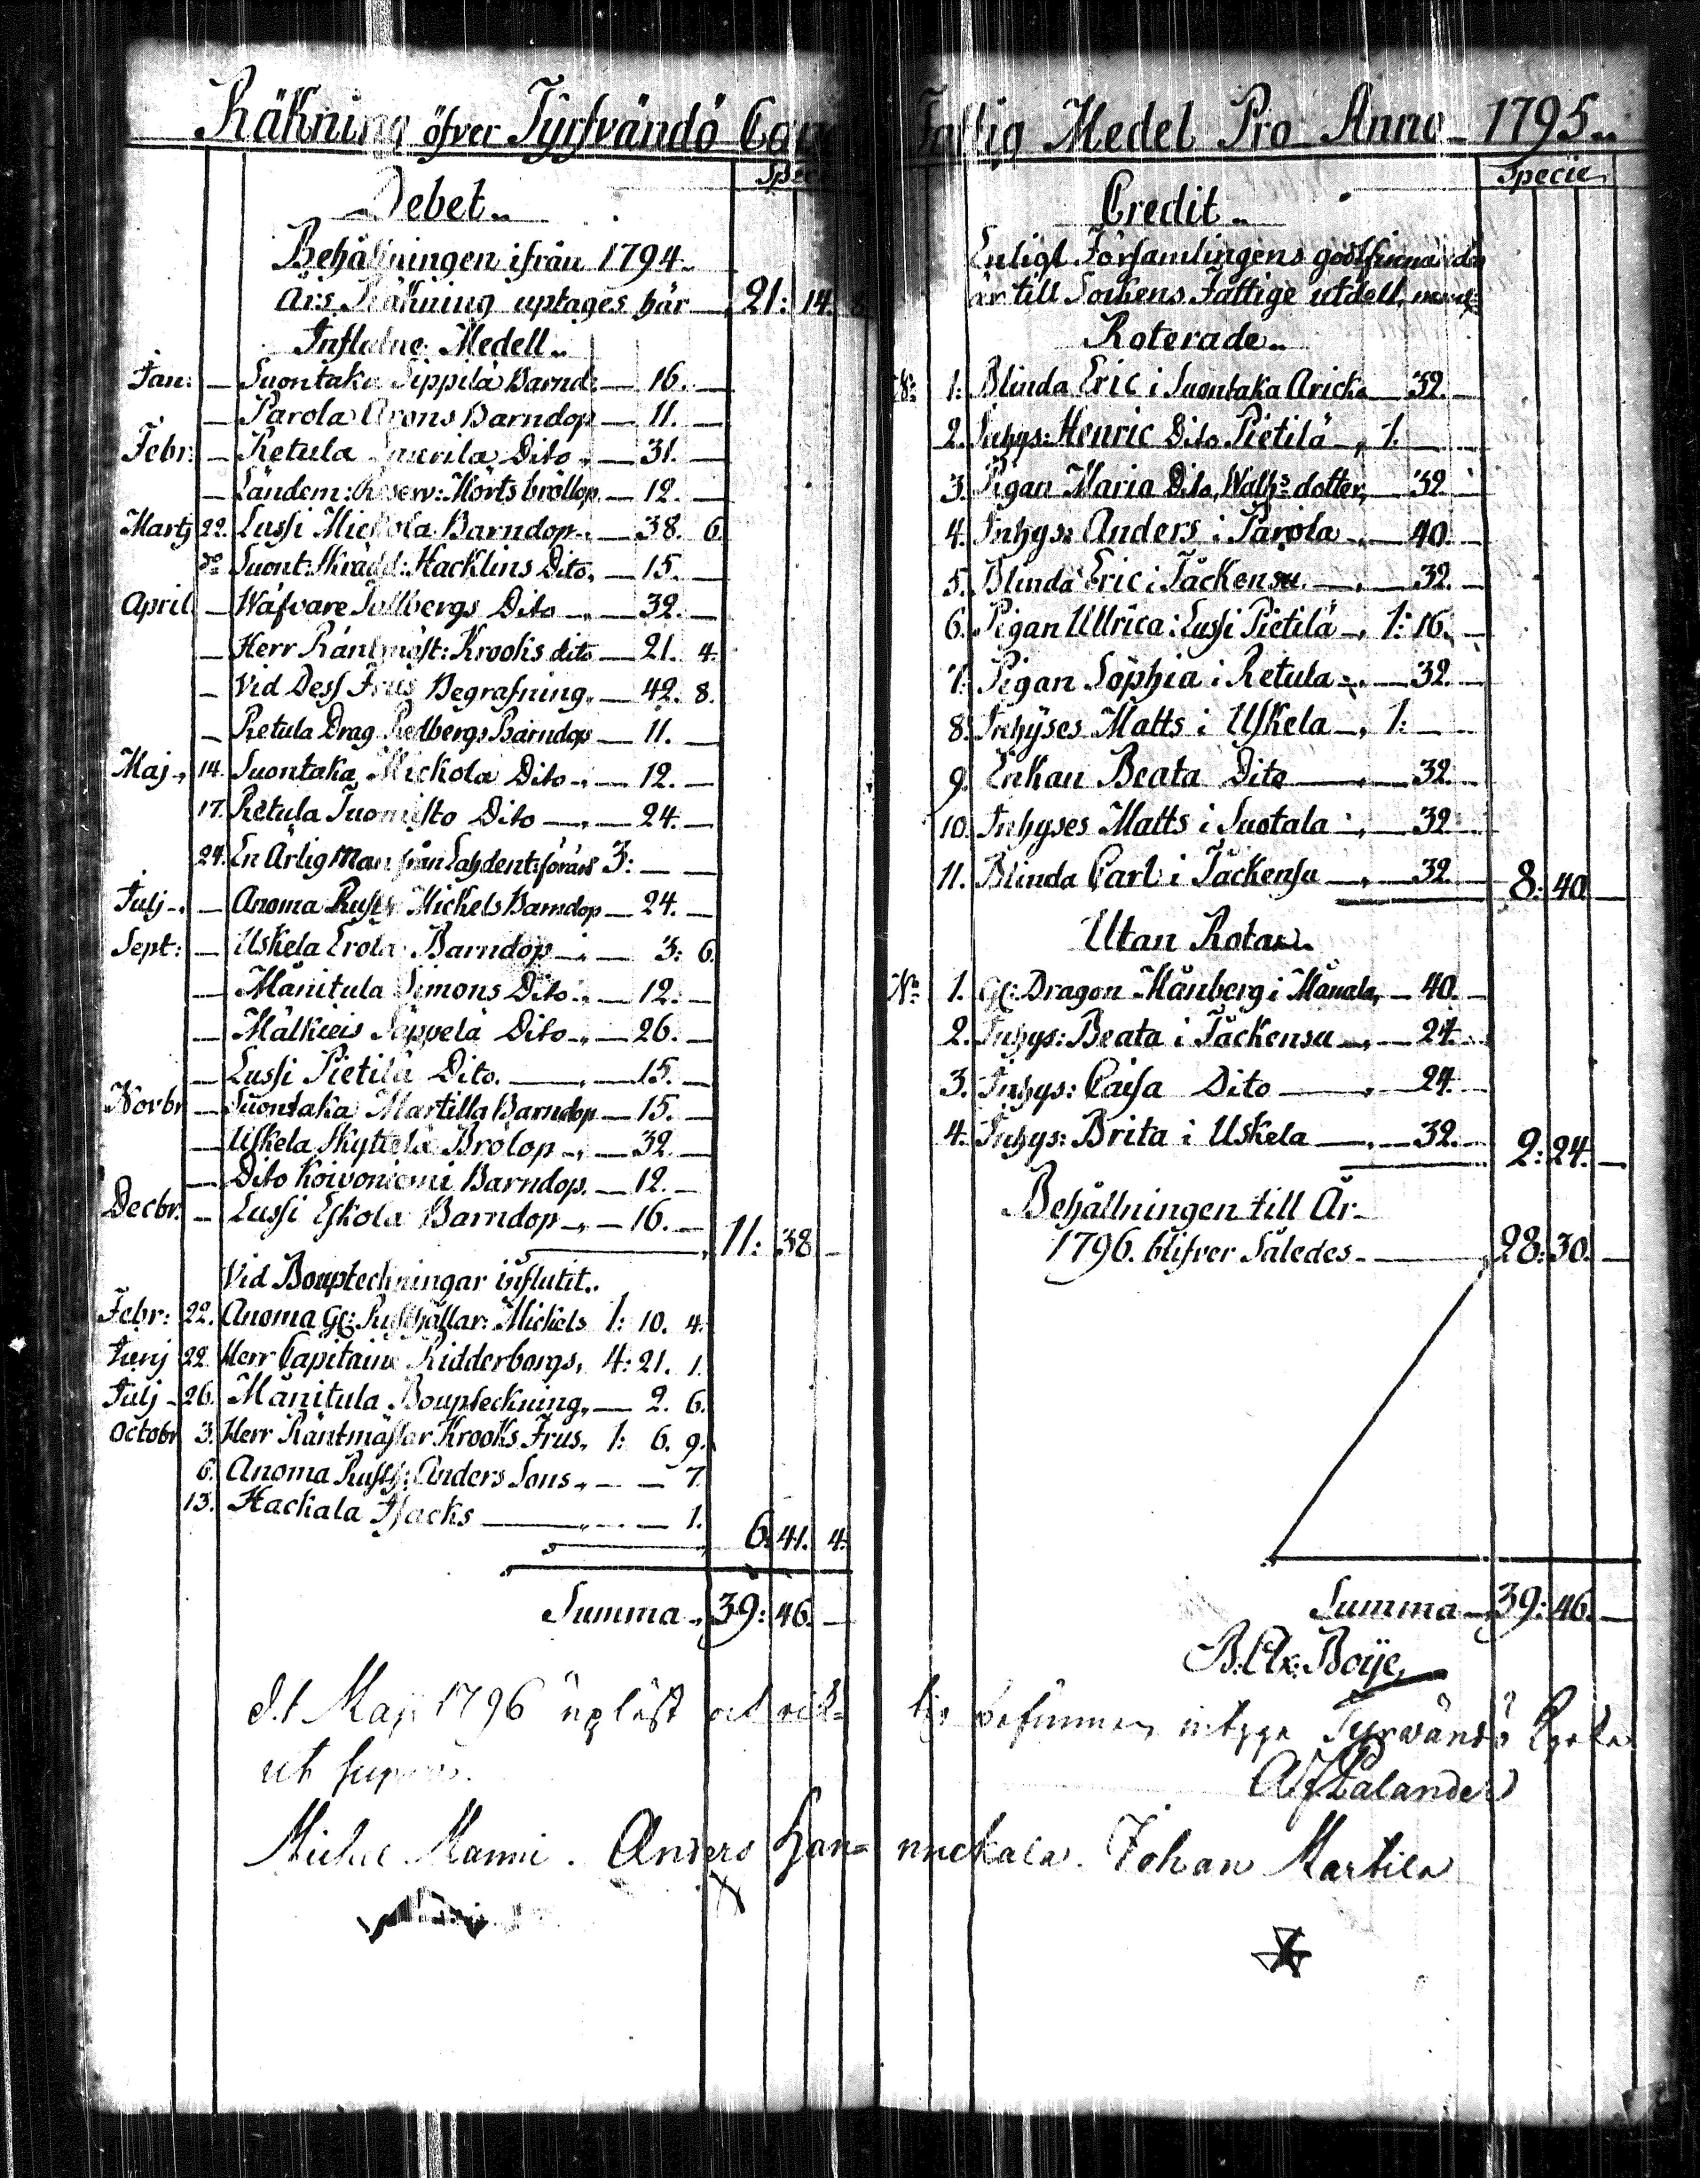 Räkning öfver Tyrfvändö
Specie
Debet
Behållningen ifrån 1794
Års Räkning uptages här — 21: 14. 8
Influtne Medell
Jan: — Suontaka Sippilä Barnd: — 16. —
— Parola Arons Barndop — 11. —
Febr: — Retula Dito — 31. —
— Ländem: Reserv: Mörts bröllop — 12. —
Martj 22. Lussi Mickola Barndop — 38. 6.
do Suont: Skrädd: Hacklins Dito — 15. —
April — Wäfvare Tollbergs Dito — 32. —
— Herr Räntmäst: Krooks dito — 21. 4.
— Vid Dess Frus Begrafning — 42. 8.
— Retula Drag Redbergs Barndop — 11. —
Maj 14. Suontaka Mickola Dito — 12. —
17. Retula Tuomisto Dito — 24. —
24. En Ärlig Man från 3: — —
Julj — Anoma Rusth Mickels Barndop — 24. —
Sept: — Uskela Erola Barndop — 3: 6.
— Mänitula Simons Dito — 12. —
— Mälkieis Seppelä Dito — 26. —
— Lussi Pietilä Dito — 15. —
Novbr — Suontaka Martilla Barndop — 15. —
— Uskela Skyttelä Brölop — 32. —
— Dito Koivoniemi Barndop. — 12. —
Decbr. — Lussi Eskola Barndop — 16. —
11: 38 —
Vid Bouptechningar influtit
Febr: 22. Anoma Gl: Rusthållar: Mickels 1: 10. 4.
Junj 22. Herr Capitaine Ridderborgs, 4: 21. 1.
Julj 26. Mänitula Boupteckning — 2. 6.
Octobr 3. Herr Räntmästar Krooks Frus, 1: 6. 9.
6. Anoma Rusth: Anders Sons — — 7.
13. Hackala Isacks — — 1.
6. 41. 4.
Summa 39: 46. —
d. 1 Maji 1796 upläst och rik=
ut supra.
Michel Manni. Anders Han=
Fattig Medel Pro Anno 1795
Specie
Credit
Enligt Församlingens godtfinnande
är till Sockens Fattige utdelt,
Roterade
No 1: Blinda Eric i Suontaka Aricka — 32. —
2. Inhys: Henric Dito Pietilä 1. —
3. Pigan Maria Dito, dotter, — 32 —
4. Inhys: Anders i Parola — 40. —
5. Blinda Eric i Täckensu — 32. —
6. Pigan Ullrica i Lussi Pietilä 1: 16. —
7. Pigan Sophia i Retula — 32. —
8. Inhyses Matts i Uskela 1: —
9. Enkan Beata Dito — 32. —
10. Inhyses Matts i Suotala — 32. —
11. Blinda Carl i Täckensu — 32. — 8: 40. —
Utan Rotar
No 1. Gl: Dragon Månberg i — 40. —
2. Inhys: Beata i Täckensu — 24. —
3. Inhys: Caisa Dito — 24. —
4. Inhys: Brita i Uskela — 32. — 2: 24. —
Behållningen till År
1796. blifver Således — 28: 30. —
Summa — 39: 46. —
B: Boije
tig befunnen intyga Tyrvändö
Palander
nuckala. Johan Martila